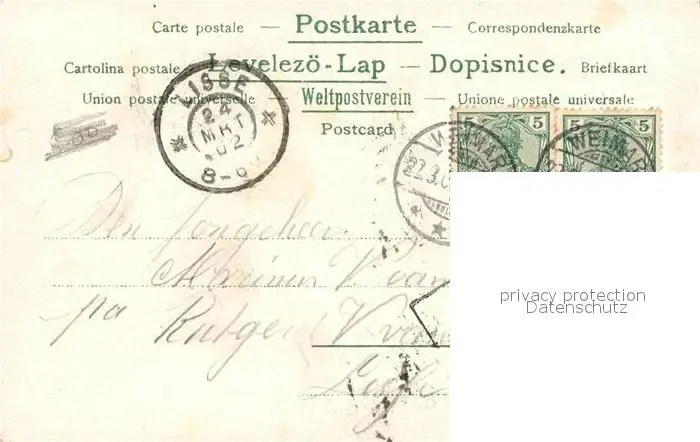 Carte postale — Postkarte — Correspondenzkarte
Cartolina postale — Levelező-Lap — Dopisnice. Briefkaart
Union postale universelle — Weltpostverein — Unione postale universale
Postcard
LISSE
24
MRT
02
8-9
5 5 5 5
WEIMAR
WEIMAR
22.3.0
privacy protection
Datenschutz
Den Jongeheer
pa Rutger